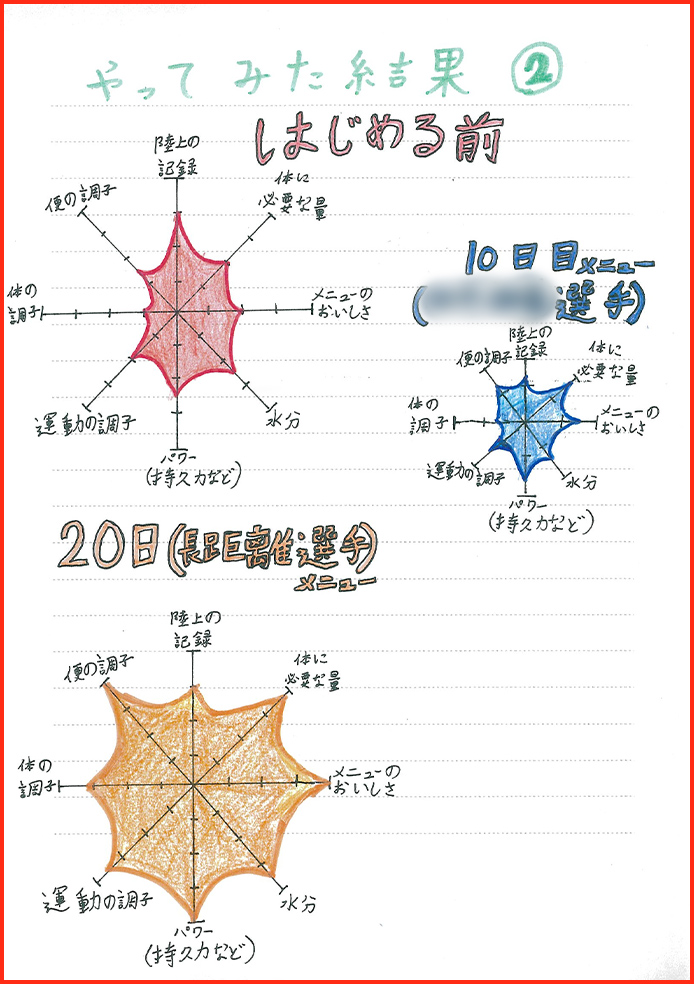 やってみた結果 ②
はじめる前
陸上の
記録
体に
必要な量
メニューの
おいしさ
水分
パワー
(持久力など)
運動の調子
体の
調子
便の調子
10日目メニュー
(選手)
陸上の
記録
体に
必要な量
メニューの
おいしさ
水分
パワー
(持久力など)
運動の調子
体の
調子
便の調子
20日(長距離選手)
メニュー
陸上の
記録
体に
必要な量
メニューの
おいしさ
水分
パワー
(持久力など)
運動の調子
体の
調子
便の調子